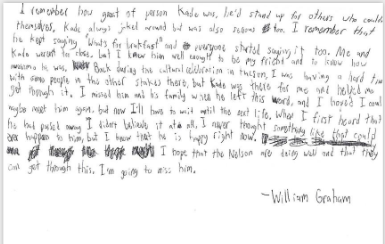 I remember how great of person Kade was, he'd stand up for others who couldn't
themselves. Kade always joked around but was also serious too. I remember that
he kept saying "What's for breakfast" and everyone started saying it too. Me and
Kade weren't to close, but I knew him well enough to be my friend and to know how
awesome he was. Back during the cultural celebration in tucson, I was having a hard time
with some people in the other stakes there, but Kade was there for me and helped me
get through it. I missed him and his family when he left this ward, and I hoped I could
maybe meet him again, but now I'll have to wait until the next life. When I first heard that
he had passed away I didn't believe it at all, I never thought something like that could
happen to him, but I know that he is happy right now.
I hope that the Nelson are doing well and that they
can get through this. I'm going to miss him.
-William Graham